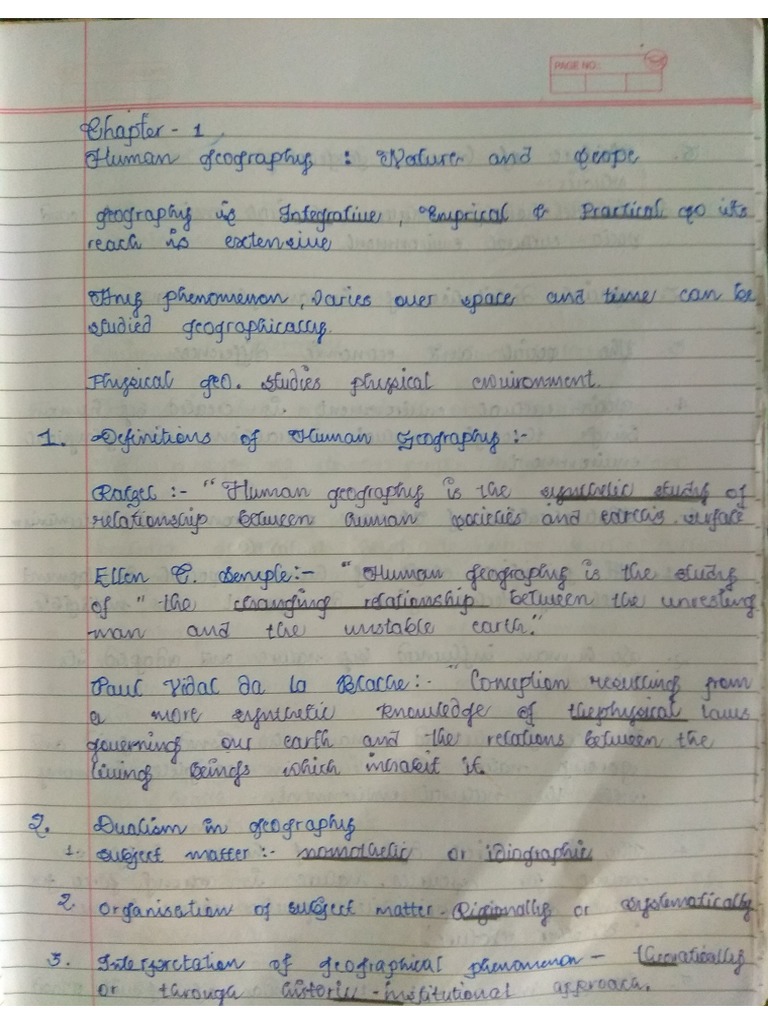 PAGE NO.:
Chapter - 1
Human Geography : Nature and Scope
geography is Integrative, Emprical & Practical so its
reach is extensive
Any phenomenon, varies over space and time can be
studied geographically.
Physical geo. studies physical environment.
1. Definitions of Human Geography :-
Ratzel :- "Human geography is the synthetic study of
relationship between human societies and earth's surface
Ellen C. Semple:- "Human geography is the study
of "the changing relationship between the unresting
man and the unstable earth."
Paul Vidal da la Blache:- "Conception resulting from
a more synthetic knowledge of the physical laws
governing our earth and the relations between the
living beings which inhabit it.
2. Dualism in geography
1. subject matter :- nomothetic or idiographic
2 Organisation of subject matter - Rigionally or systematically
3. Interpretation of geographical phenomenon - theoratically
or through historic - institutional approach.